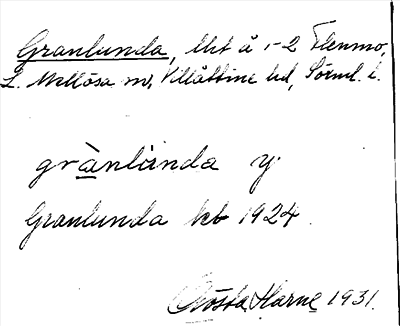 Granlunda, lht å 1-2 Flenmo,
L. Mellösa sn, Villåttine hd, Sörml. l.
grànlúnda y.
Granlunda kb 1924.
Gösta Harne 1931.